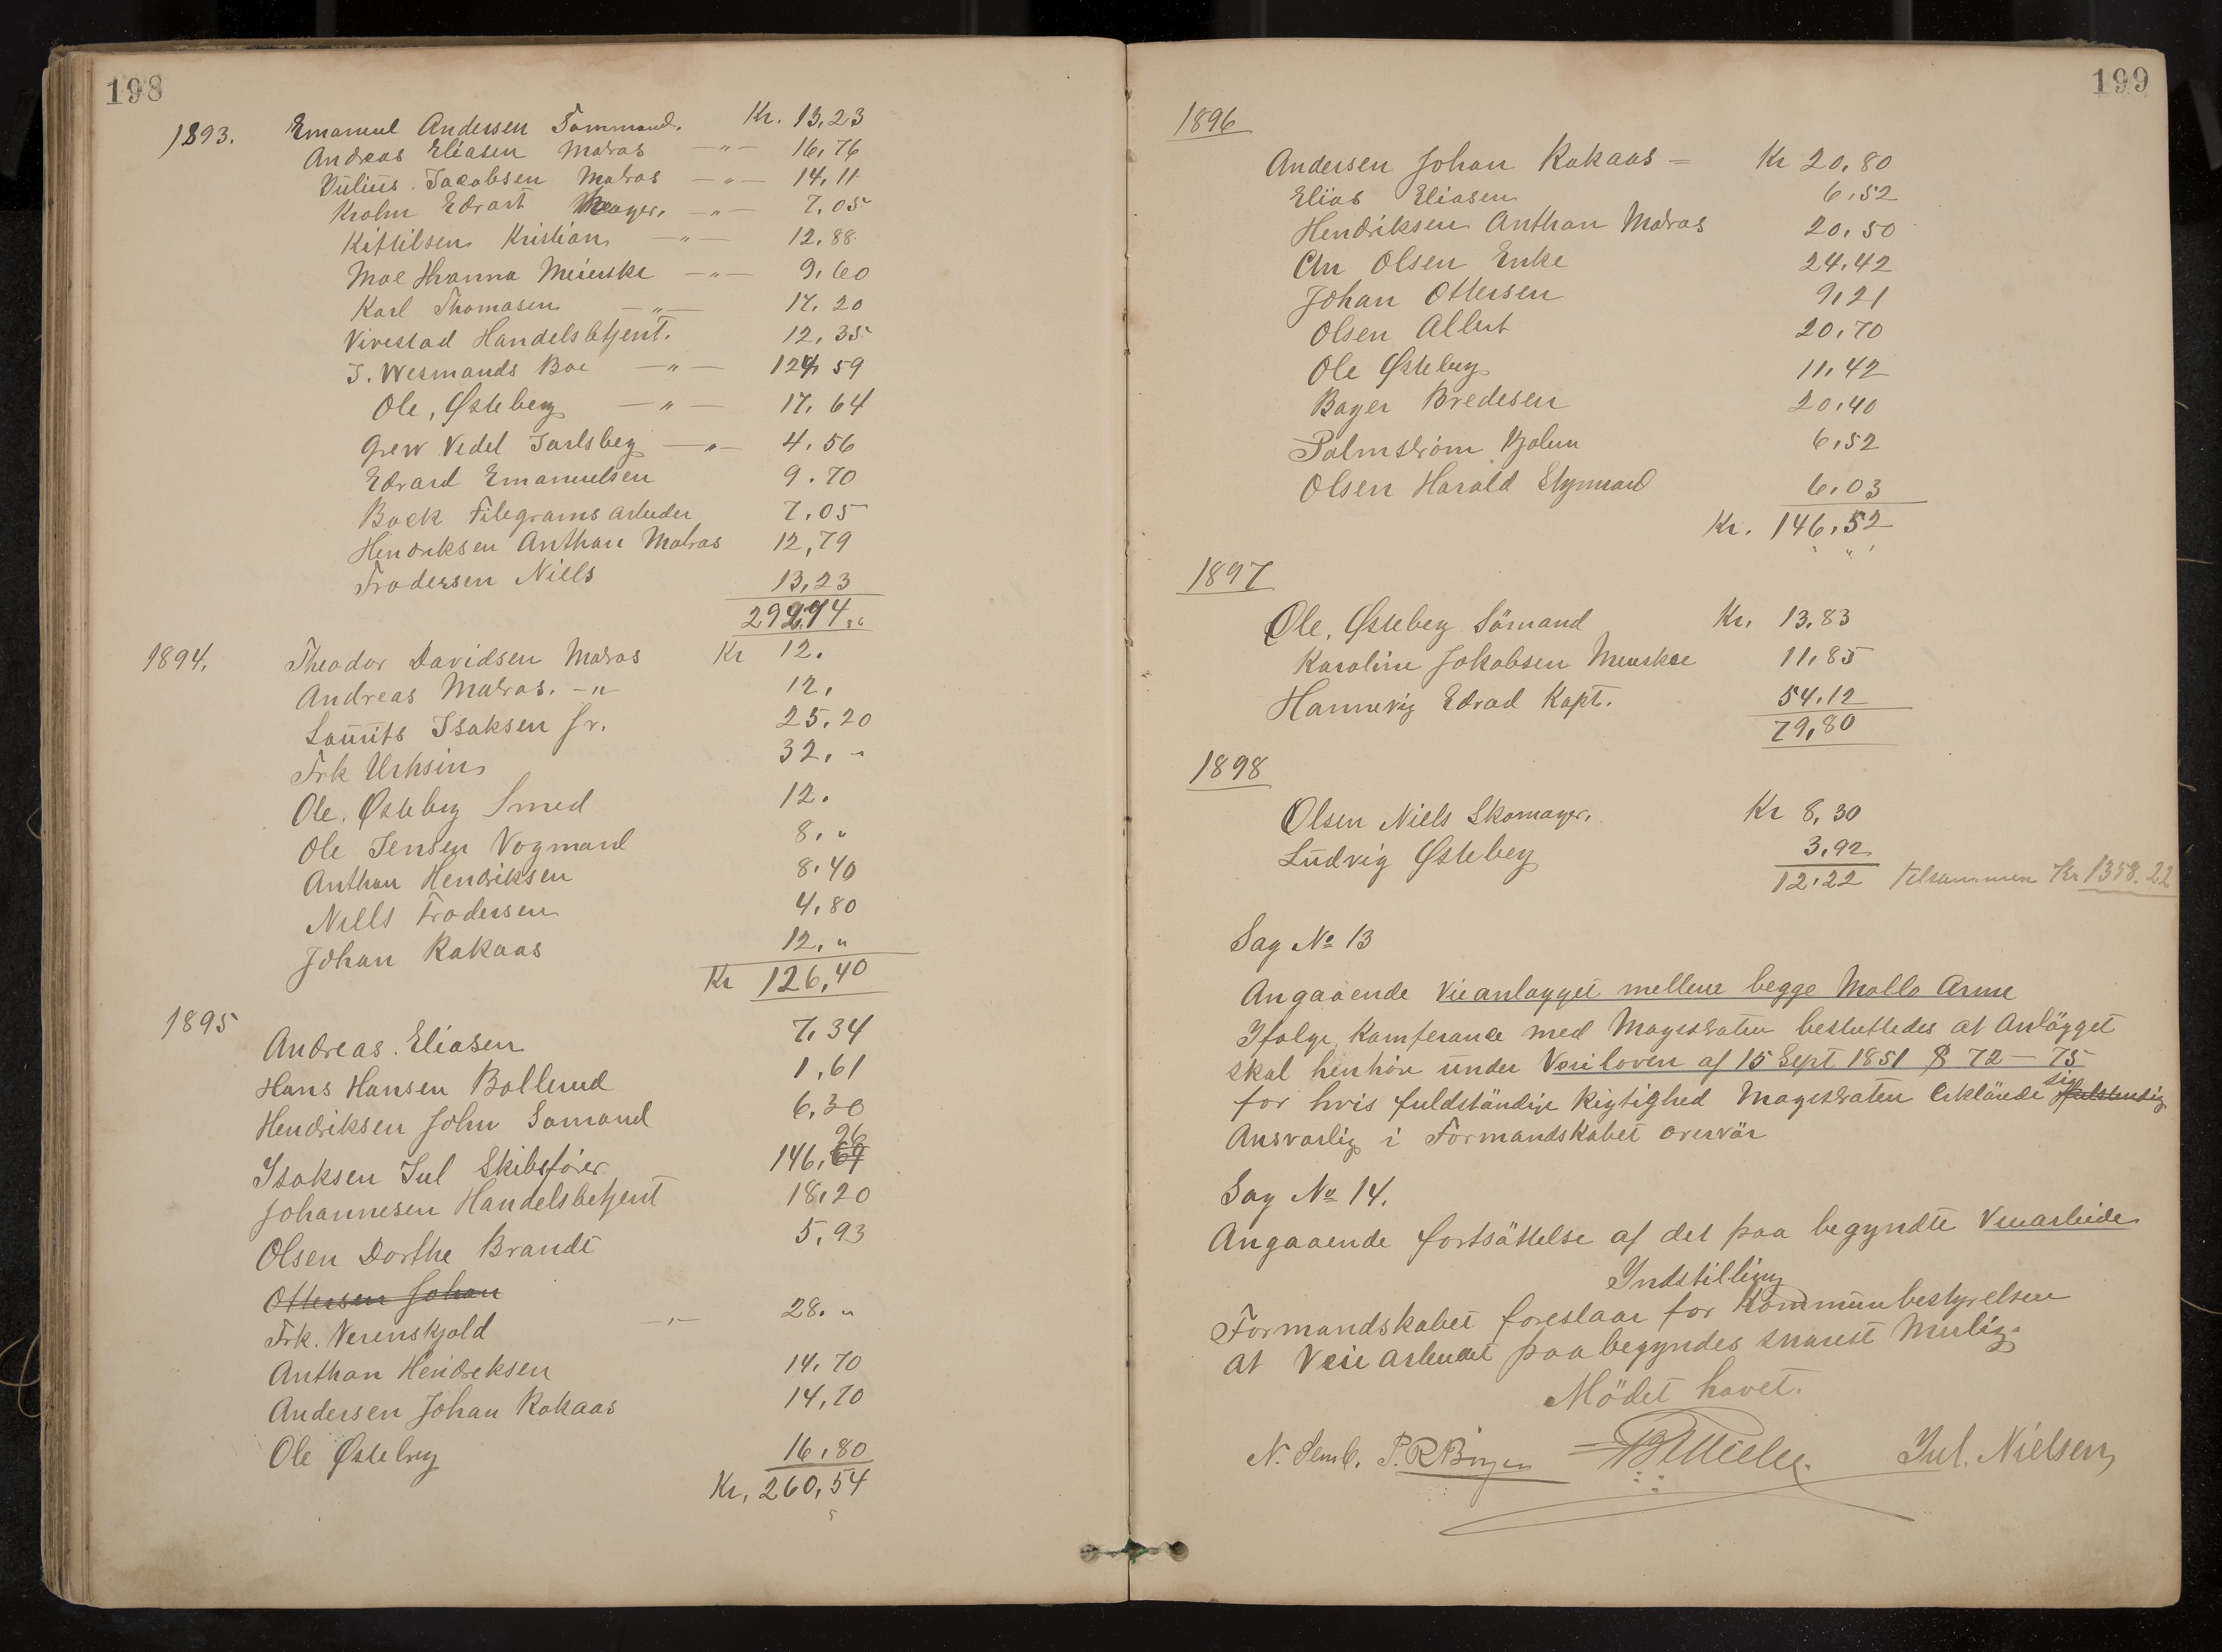 198
1893. Emanuel Andersen Tømmand. Kr. 13,23
Andreas Eliasen Matros —"— 16,76
Julius. Jacobsen Matros —"— 14,11
Krohn Edvart —"— 7,05
Kittilsen Kristian —"— 12,88
Moe Hanna Meierske —"— 9,60
Karl Thomasen —"— 17,20
Virestad Handelsbetjent. 12,35
J. Wesmands Boe —"— 124,59
Ole, Østeberg —"— 17,64
Grew Vedel Jarlsberg —"— 4,56
Edvard Emanuelsen 9.70
Bock Telegrams arbeider 7,05
Hendriksen Anthon Matros 12,79
Frodersen Niels 13,23
1894. Theodor Davidsen Matros Kr 12.
Andreas Matros. -"- 12,
Laurits Isaksen Jr. 25.20
Frk 32. "
Ole. Østeberg Smed 12.
Ole Jensen Vogmand 8. "
Anthon Hendriksen 8.40
Niells Frodersen 4,80
Johan Rakaas 12. "
Kr 126,40
1895
Andreas. Eliasen 7,34
Hans Hansen Bollerud 1,61
Hendriksen John Sømand 6,30
Isaksen Jul Skibsfører 146,69 26
Johannesen Handelsbetjent 18,20
Olsen Dorthe Brandt 5,93
Ottersen Johan
Frk. Verenskjold —"— 28. "
Anthon Hendreksen 14,70
Andersen Johan Rakaas 14,70
Ole Østeberg 16,80
Kr, 260,54
199
1896
Andersen Johan Rakaas = Kr 20,80
Elias Eliasen 6,52
Hendriksen Anthon Matros 20,50
Chr Olsen Enke 24,42
Johan Ottersen 9,21
Olsen Albert 20,70
Ole Østeberg 11,42
Bager Bredesen 20,40
Palmstrøm Hjalm 6,52
Olsen Harald Styrmand 6,03
Kr. 146,52
1897
Ole, Østeberg Sömand Kr. 13,83
Karoline Jakobsen Meierske 11,85
Hannevig Edvad Kapt. 54,12
79,80
1898
Olsen Niels Skomager. Kr 8,30
Ludvig Østeberg 3,92
12,22 Tilsammen Kr 1358.22
Sag No 13
Angaaende Veianlægget mellem begge Mollo Arme
Ifølge Konferance med Magistraten besluttedes at Anlägget
skal henhöre under Veiloven af 15 Sept 1851 § 72 — 75
for hvis fuldständige Rigtighed Magistraten erklärede sig fulstendig
Ansvarlig i Formandskabet overvär
Sag No 14.
Angaaende fortsättelse af det paa begyndte Veiarbeide
Indstilling
Formandskabet foreslaar for Kommunbestyrelsen
at Veie arbeidet paabegyndes snarest Mulig.
Mödet hævet.
N. Semb. Jul. Nielsen